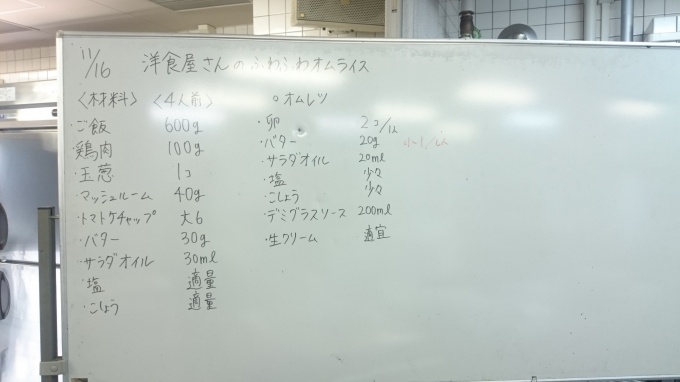 11/16 洋食屋さんのふわふわオムライス
<材料> <4人前>
・ご飯 600g
・鶏肉 100g
・玉葱 1コ
・マッシュルーム 40g
・トマトケチャップ 大6
・バター 30g
・サラダオイル 30ml
・塩 適量
・こしょう 適量
○オムレツ
・卵 2コ/1人
・バター 20g
・サラダオイル 20ml
・塩 少々
・こしょう 少々
・デミグラスソース 200ml
・生クリーム 適宜